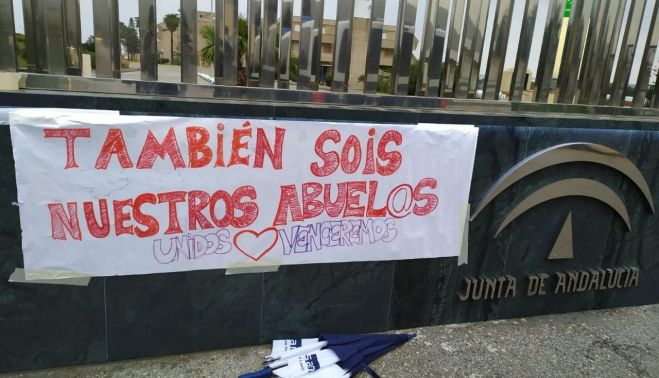 TAMBIÉN SOIS
NUESTROS ABUEL@S
UNIDOS VENCEREMOS
JUNTA DE ANDALUCIA